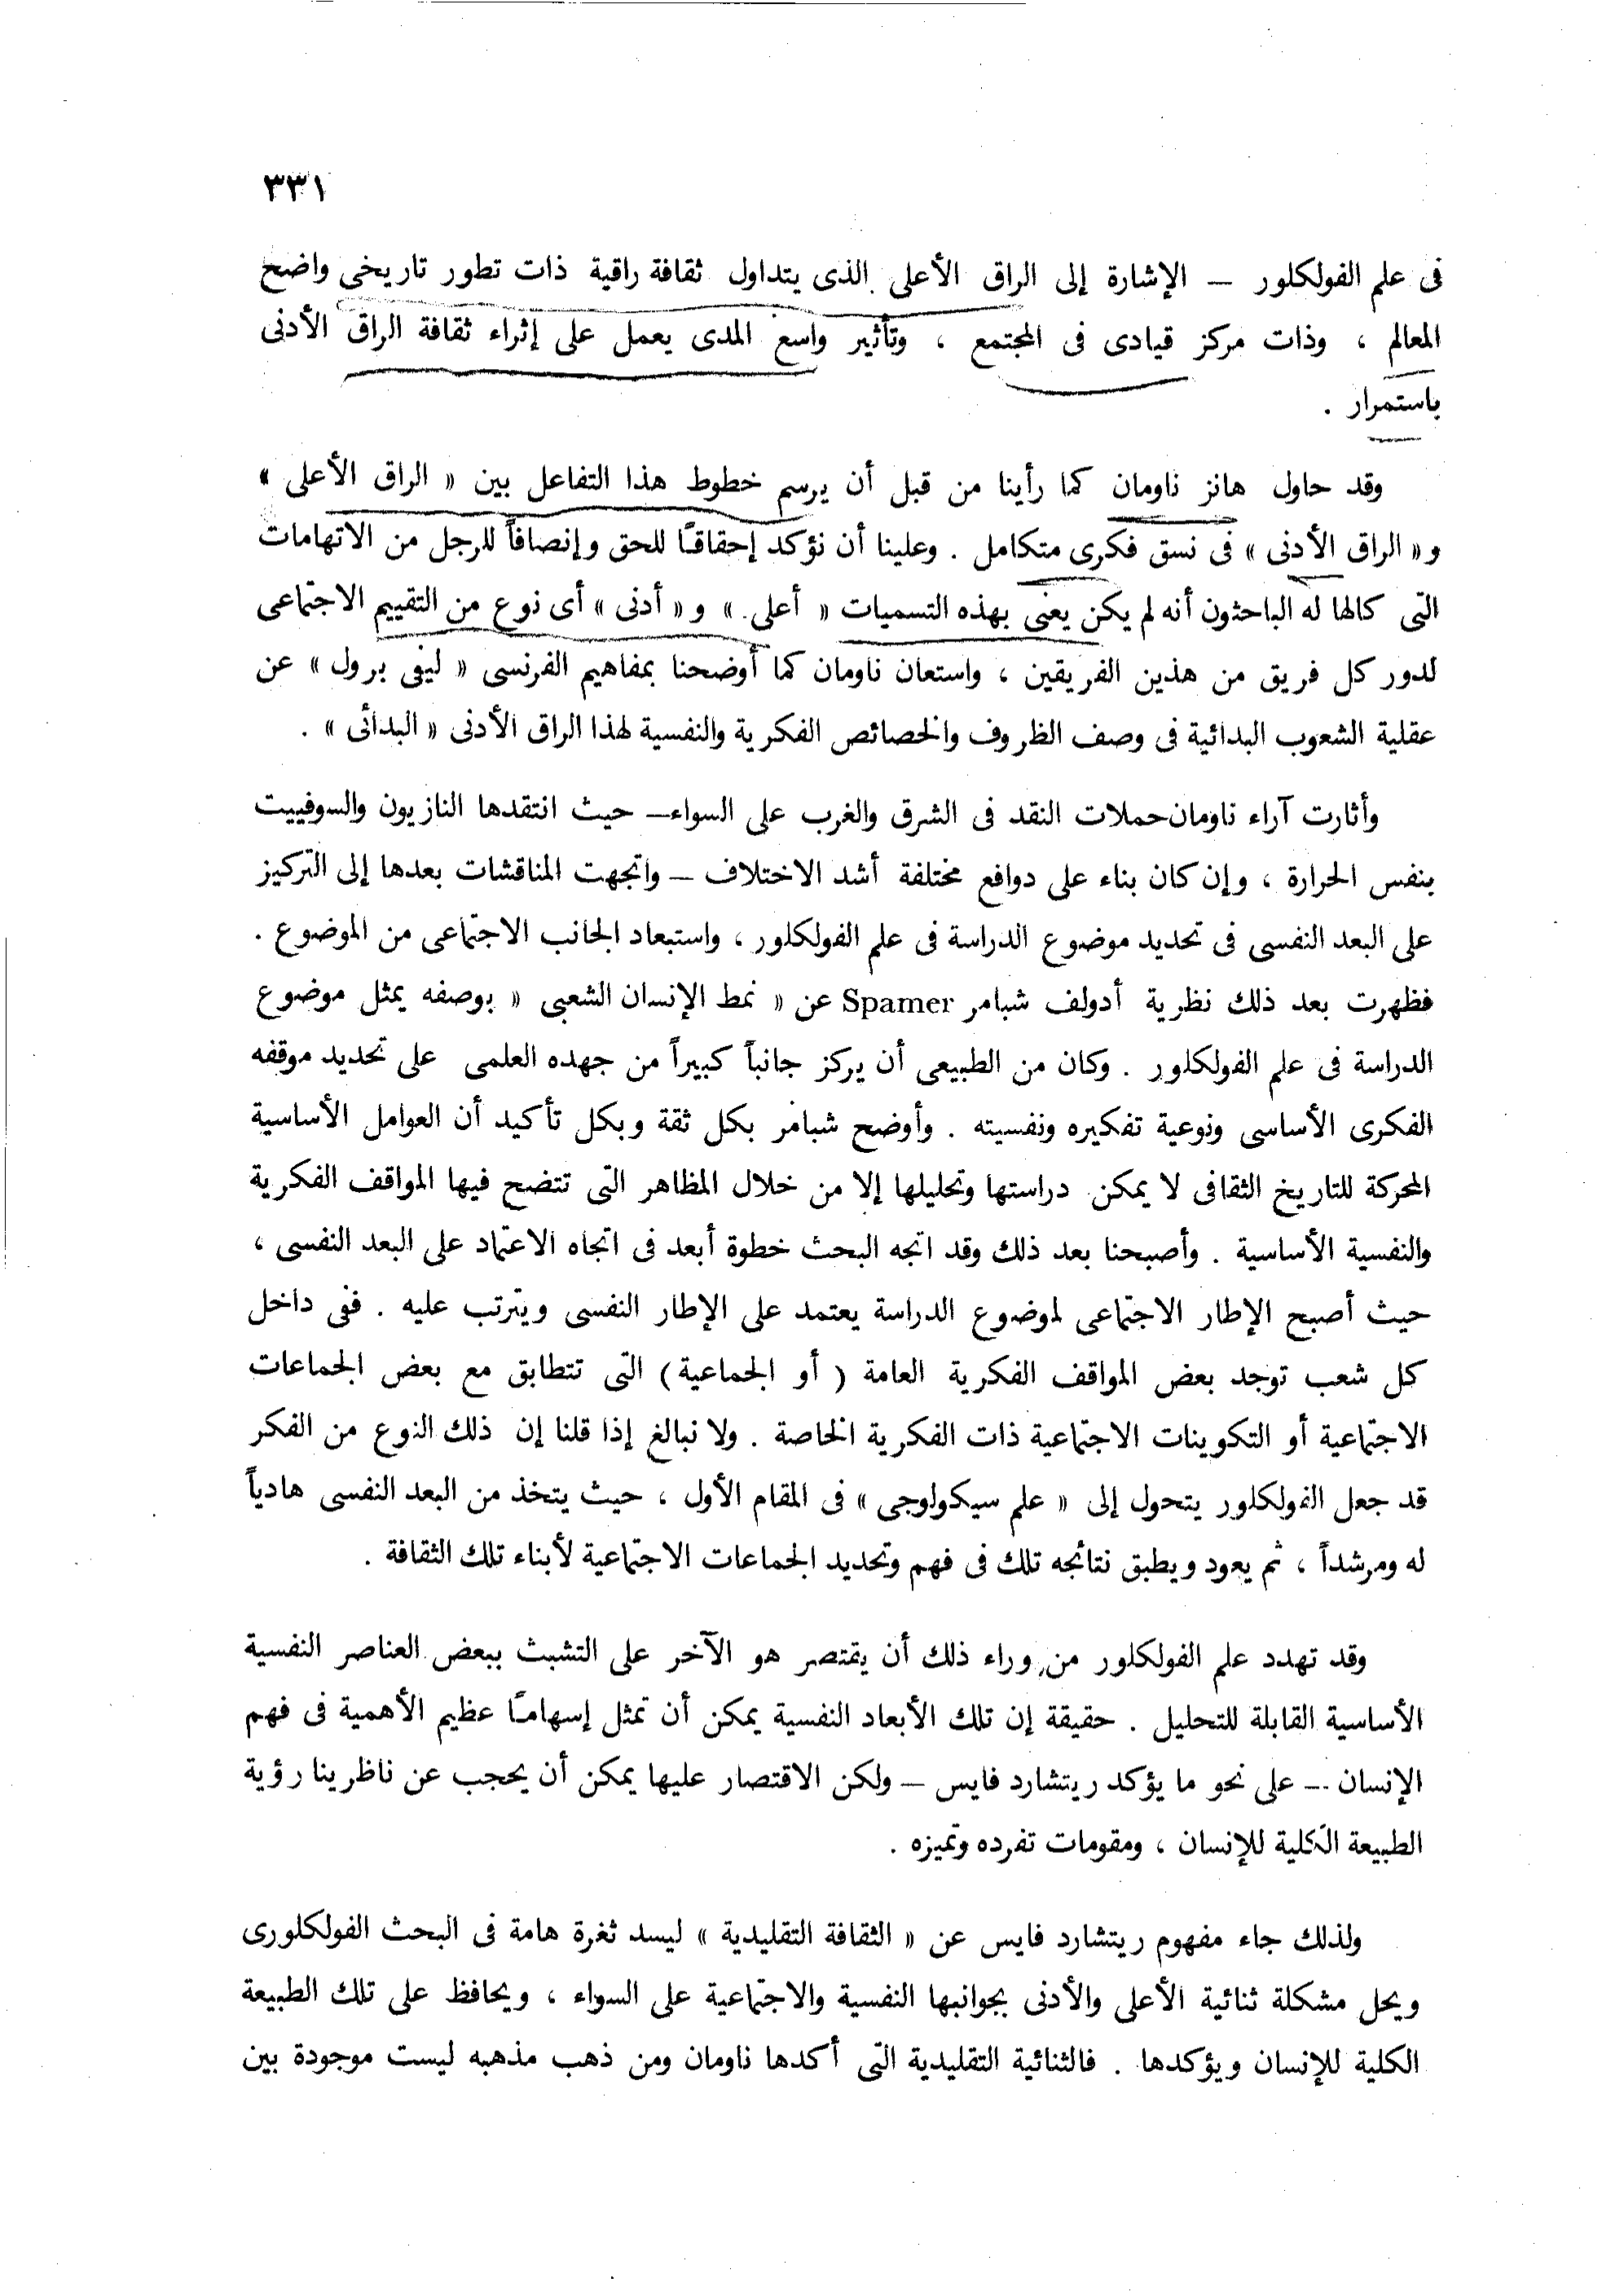 ٣٣١
فى علم الفولكلور — الإشارة إلى الراق الأعلى الذى يتداول ثقافة راقية ذات تطور تاريخى واضح
المعالم ، وذات مركز قيادى فى المجتمع ، وتأثير واسع المدى يعمل على إثراء ثقافة الراق الأدنى
باستمرار .
وقد حاول هانز ناومان كما رأينا من قبل أن يرسم خطوط هذا التفاعل بين « الراق الأعلى »
و« الراق الأدنى » فى نسق فكرى متكامل . وعلينا أن نؤكد إحقاقًا للحق وإنصافاً للرجل من الاتهامات
التى كالها له الباحثون أنه لم يكن يعنى بهذه التسميات « أعلى » و « أدنى » أى نوع من التقييم الاجتماعى
لدور كل فريق من هذين الفريقين ، واستعان ناومان كما أوضحنا بمفاهيم الفرنسى « ليفى برول » عن
عقلية الشعوب البدائية فى وصف الظروف والخصائص الفكرية والنفسية لهذا الراق الأدنى « البدائى » .
وأثارت آراء ناومان حملات النقد فى الشرق والغرب على السواء — حيث انتقدها النازيون والسوفييت
بنفس الحرارة ، وإن كان بناء على دوافع مختلفة أشد الاختلاف — واتجهت المناقشات بعدها إلى التركيز
على البعد النفسى فى تحديد موضوع الدراسة فى علم الفولكلور ، واستبعاد الجانب الاجتماعى من الموضوع .
فظهرت بعد ذلك نظرية أدولف شبامر Spamer عن « نمط الإنسان الشعبى « بوصفه يمثل موضوع
الدراسة فى علم الفولكلور . وكان من الطبيعى أن يركز جانباً كبيراً من جهده العلمى على تحديد موقفه
الفكرى الأساسى ونوعية تفكيره ونفسيته . وأوضح شبامر بكل ثقة وبكل تأكيد أن العوامل الأساسية
المحركة للتاريخ الثقافى لا يمكن دراستها وتحليلها إلا من خلال المظاهر التى تتضح فيها المواقف الفكرية
والنفسية الأساسية . وأصبحنا بعد ذلك وقد اتجه البحث خطوة أبعد فى اتجاه الاعتماد على البعد النفسى ،
حيث أصبح الإطار الاجتماعى لموضوع الدراسة يعتمد على الإطار النفسى ويترتب عليه . ففى داخل
كل شعب توجد بعض المواقف الفكرية العامة ( أو الجماعية ) التى تتطابق مع بعض الجماعات
الاجتماعية أو التكوينات الاجتماعية ذات الفكرية الخاصة . ولا نبالغ إذا قلنا إن ذلك النوع من الفكر
قد جعل الفولكلور يتحول إلى « علم سيكولوجى » فى المقام الأول ، حيث يتخذ من البعد النفسى هادياً
له ومرشداً ، ثم يعود ويطبق نتائجه تلك فى فهم وتحديد الجماعات الاجتماعية لأبناء تلك الثقافة .
وقد تهدد علم الفولكلور من وراء ذلك أن يقتصر هو الآخر على التشبث ببعض العناصر النفسية
الأساسية القابلة للتحليل . حقيقة إن تلك الأبعاد النفسية يمكن أن تمثل إسهامًا عظيم الأهمية فى فهم
الإنسان — على نحو ما يؤكد ريتشارد فايس — ولكن الاقتصار عليها يمكن أن يحجب عن ناظرينا رؤية
الطبيعة الكلية للإنسان ، ومقومات تفرده وتميزه .
ولذلك جاء مفهوم ريتشارد فايس عن « الثقافة التقليدية » ليسد ثغرة هامة فى البحث الفولكلورى
ويحل مشكلة ثنائية الأعلى والأدنى بجوانبها النفسية والاجتماعية على السواء ، ويحافظ على تلك الطبيعة
الكلية للإنسان ويؤكدها . فالثنائية التقليدية التى أكدها ناومان ومن ذهب مذهبه ليست موجودة بين